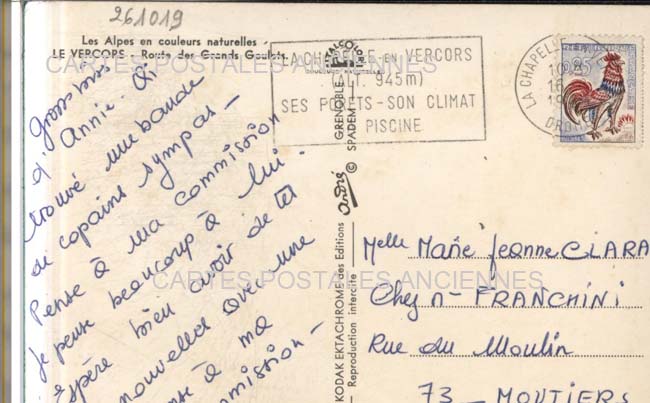 261019
Les Alpes en couleurs naturelles
LE VERCORS - Route des Grands Goulets
CARTES POSTALES ANCIENNES
LA CHAPELLE EN VERCORS
ALT. 945m
SES PORETS - SON CLIMAT
PISCINE
LA CHAPELLE
0,25
Gros bisous
d'Annie. Ai
trouvé une bande
de copains sympas -
Pense à ma commission
Je pense beaucoup à lui
Espère bien avoir de tes
nouvelles avec une
à ma
commission -
GRENOBLE
SPADEM
André
KODAK EKTACHROME des Editions
Reproduction interdite
Melle Marie Jeanne CLARA
CARTES POSTALES ANCIENNES
Chez n - FRANCHINI
Rue du Moulin
73 - MOUTIERS